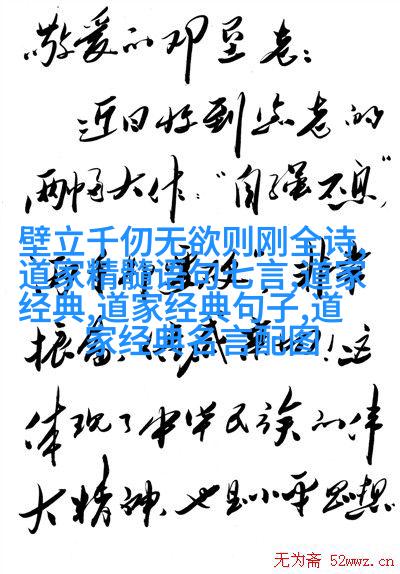 敬爱的邓垦老:
近日收到您老的
两幅大作:“自强不息”
壁立千仞无欲则刚全诗,
道家精髓语句七言,道家
经典,道家经典句子,道
家经典名言配图
振奋
这
体现了中华民族的伟
大精神,也是小平思想
无为斋 52wwz.cn